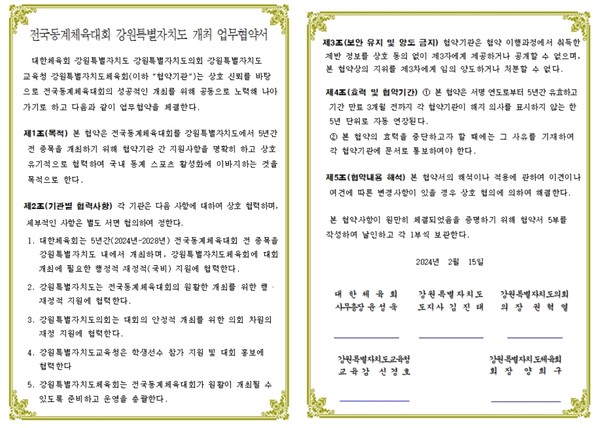 전국동계체육대회 강원특별자치도 개최 업무협약서
대한체육회 강원특별자치도 강원특별자치도의회 강원특별자치도
교육청 강원특별자치도체육회(이하 "협약기관")는 상호 신뢰를 바탕
으로 전국동계체육대회의 성공적인 개최를 위해 공동으로 노력해 나아
가기로 하고 다음과 같이 업무협약을 체결한다.
제1조(목적) 본 협약은 전국동계체육대회를 강원특별자치도에서 5년간
전 종목을 개최하기 위해 협약기관 간 지원사항을 명확히 하고 상호
유기적으로 협력하여 국내 동계 스포츠 활성화에 이바지하는 것을
목적으로 한다.
제2조(기관별 협력사항) 각 기관은 다음 사항에 대하여 상호 협력하며,
세부적인 사항은 별도 서면 협의하여 정한다.
1. 대한체육회는 5년간(2024년-2028년) 전국동계체육대회 전 종목을
강원특별자치도 내에서 개최하며, 강원특별자치도체육회에 대회
개최에 필요한 행정적·재정적(국비) 지원에 협력한다.
2. 강원특별자치도는 전국동계체육대회의 원활한 개최를 위한 행·
재정적 지원에 협력한다.
3. 강원특별자치도의회는 대회의 안정적 개최를 위한 의회 차원의
재정 지원에 협력한다.
4. 강원특별자치도교육청은 학생선수 참가 지원 및 대회 홍보에
협력한다
5. 강원특별자치도체육회는 전국동계체육대회가 원활이 개최될 수
있도록 준비하고 운영을 총괄한다.
제3조(보안 유지 및 양도 금지) 협약기관은 협약 이행과정에서 취득한
제반 정보를 상호 동의 없이 제3자에게 제공하거나 공개할 수 없으며,
본 협약상의 지위를 제3자에게 임의 양도하거나 처분할 수 없다.
제4조(효력 및 협약기간) ① 본 협약은 서명 연도로부터 5년간 유효하고
기간 만료 3개월 전까지 각 협약기관이 해지 의사를 표시하지 않는 한
5년 단위로 자동 연장된다.
② 본 협약의 효력을 중단하고자 할 때에는 그 사유를 기재하여
각 협약기관에 문서로 통보하여야 한다.
제5조(협약내용 해석) 본 협약서의 해석이나 적용에 관하여 이견이나
여건에 따른 변경사항이 있을 경우 상호 협의에 의하여 해결한다.
본 협약사항이 원만히 체결되었음을 증명하기 위해 협약서 5부를
작성하여 날인하고 각 1부씩 보관한다.
2024년 2월 15일
대한체육회 강원특별자치도 강원특별자치도의회
사무총장 윤성욱 도지사 김진태 의장 권혁열
강원특별자치도교육청 강원특별자치도체육회
교육감 신경호 회장 양희구